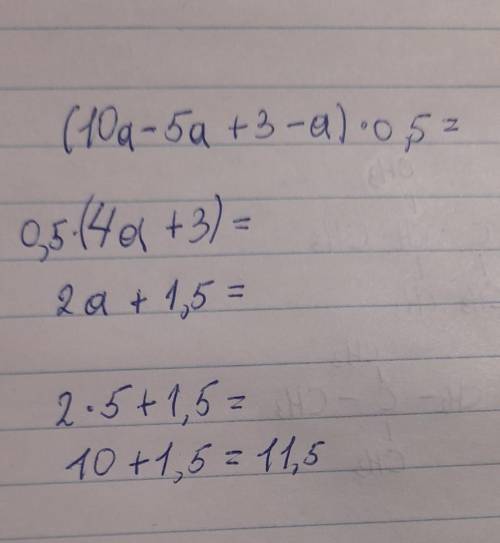 (10a-5a+3-a)·0,5=
0,5·(4a+3)=
2a+1,5=
2·5+1,5=
10+1,5=11,5